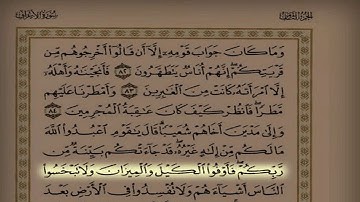 وَمَا كَانَ جَوَابَ قَوْمِهِۦٓ إِلَّآ أَن قَالُوٓا۟ أَخْرِجُوهُم مِّن
قَرْيَتِكُمْ إِنَّهُمْ أُنَاسٌ يَتَطَهَّرُونَ ٨٢ فَأَنجَيْنَٰهُ وَأَهْلَهُۥٓ
إِلَّا ٱمْرَأَتَهُۥ كَانَتْ مِنَ ٱلْغَٰبِرِينَ ٨٣ وَأَمْطَرْنَا عَلَيْهِم
مَّطَرًا فَٱنظُرْ كَيْفَ كَانَ عَٰقِبَةُ ٱلْمُجْرِمِينَ ٨٤
وَإِلَىٰ مَدْيَنَ أَخَاهُمْ شُعَيْبًا قَالَ يَٰقَوْمِ ٱعْبُدُوا۟ ٱللَّهَ
مَا لَكُم مِّنْ إِلَٰهٍ غَيْرُهُۥ قَدْ جَآءَتْكُم بَيِّنَةٌ مِّن
رَّبِّكُمْ فَأَوْفُوا۟ ٱلْكَيْلَ وَٱلْمِيزَانَ وَلَا تَبْخَسُوا۟
ٱلنَّاسَ أَشْيَآءَهُمْ وَلَا تُفْسِدُوا۟ فِى ٱلْأَرْضِ بَعْدَ